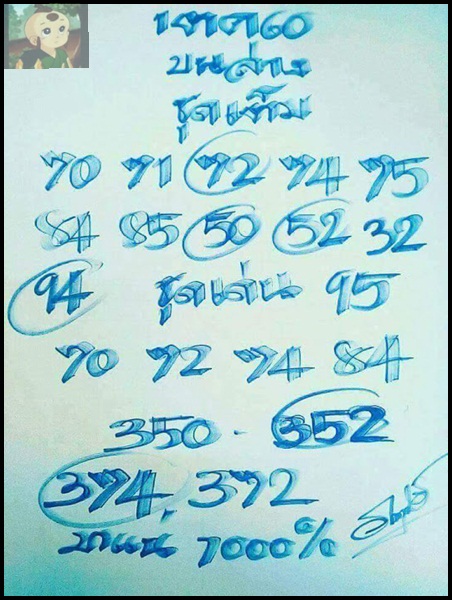 บนล่าง
ชุดเต็ม
70 71 72 74 75
84 85 50 52 32
94 ชุดเด่น 95
70 72 74 84
350 - 352
374, 372
1000%